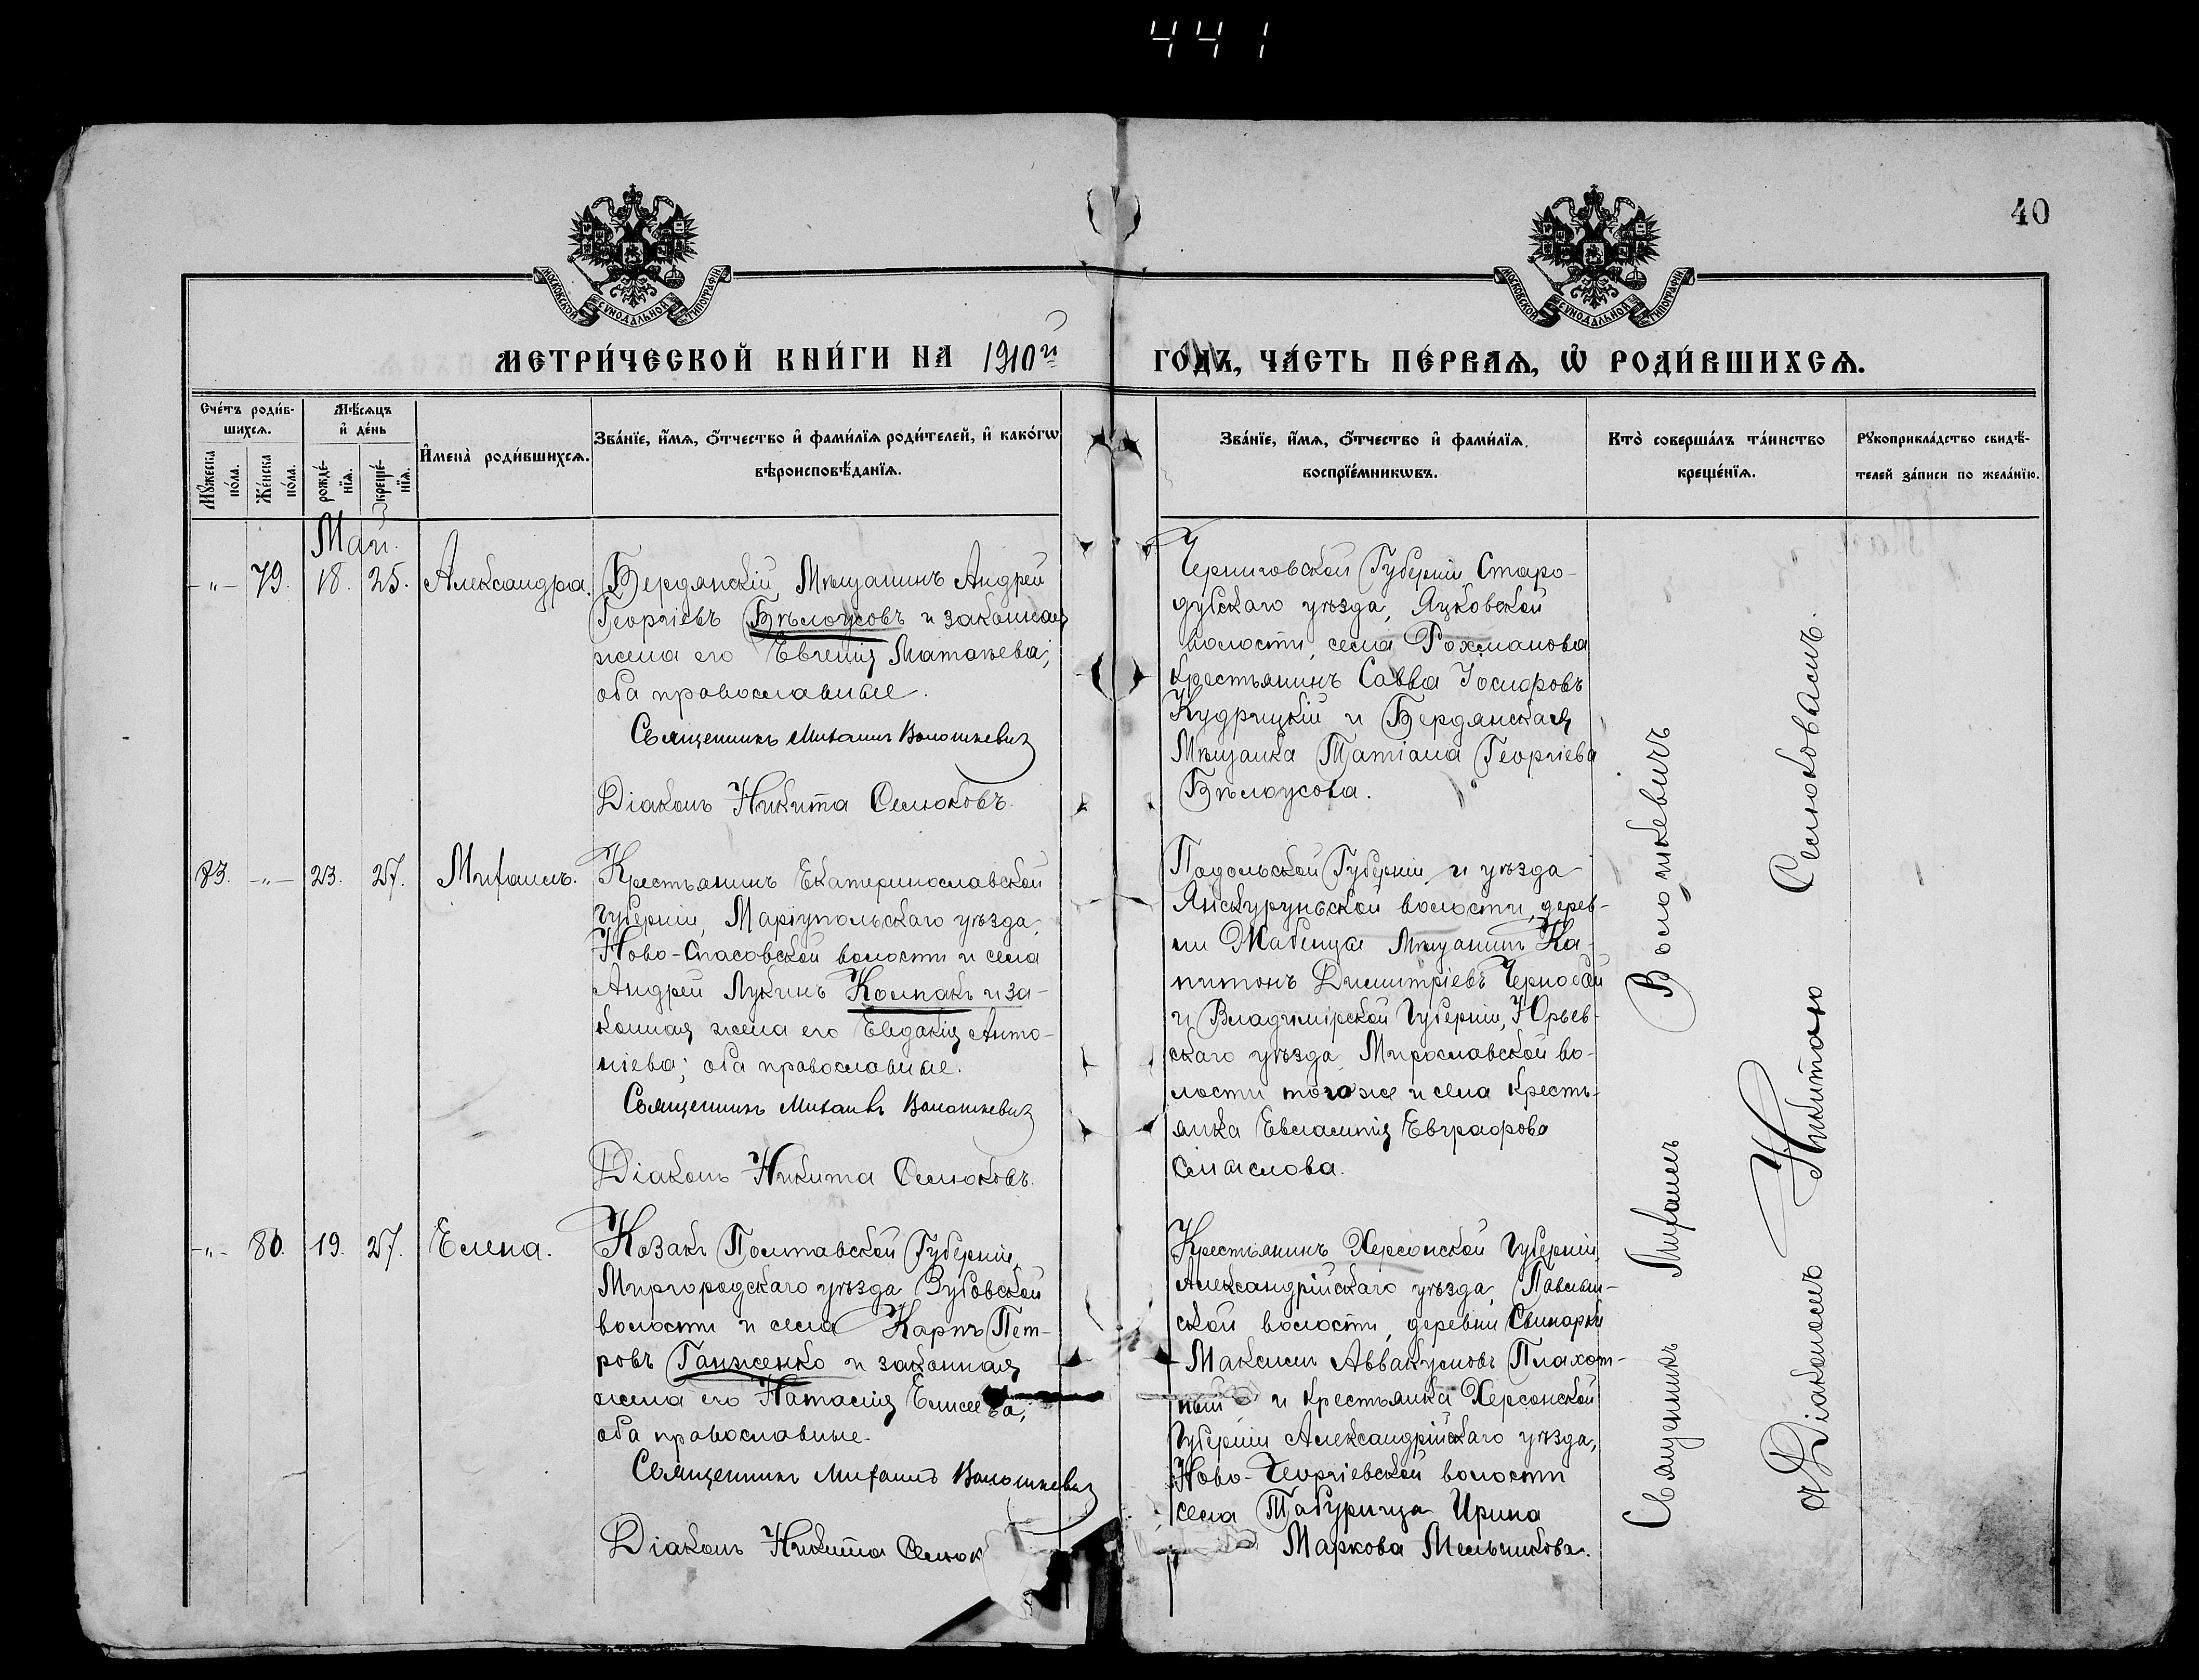 441
40
МОСКОВСКОЙ СѴНОДАЛЬНОЙ ТИПОГРАФІИ
МОСКОВСКОЙ СѴНОДАЛЬНОЙ ТИПОГРАФІИ
МЕТРИ́ЧЕСКОЙ КНИ́ГИ НА 1910й
ГОДЪ, ЧА́СТЬ ПЕ́РВАѦ, Ѡ РОДИ́ВШИХСѦ.
Сче́тъ роди́в-
шихсѧ.
Мꙋ́жеска по́ла.
Же́нска по́ла.
Мѣ́сѧцъ
и де́нь
рожде́-
нїѧ.
креще́-
нїѧ.
Имена̀ роди́вшихсѧ.
Зва́нїе, и́мѧ, о́тчество и фами́лїѧ роди́телей, и како́гѡ
вѣроисповѣ́данїѧ.
Зва́нїе, и́мѧ, о́тчество и фами́лїѧ
воспрїе́мникѡвъ.
Кто̀ соверша́лъ та́инство
креще́нїѧ.
Рꙋкоприкла́дство свидѣ́-
телей за́писи по жела́нїю.
Май.
-"- 79. 18. 25. Александра.
Бердянскій Мѣщанинъ Андрей
Георгіевъ Бѣлоусовъ и законная
жена его Евгенія Матѳѣева;
оба православные.
Священникъ Михаилъ Волошкевич
Діаконъ Никита Селюковъ.
Черниговской Губерніи Старо-
дубскаго уѣзда, Яцковской
волости, села Рохманова
крестьянинъ Савва Іосифовъ
Кудрицкій и Бердянская
Мѣщанка Татіана Георгіева
Бѣлоусова.
83. -"- 23. 27. Михаилъ.
Крестьянинъ Екатеринославской
губерніи, Маріупольскаго уѣзда,
Ново-Спасовской волости и села
Андрей Лукинъ Колпакъ и за-
конная жена его Евдокія Анто-
ніева; оба православные.
Священникъ Михаилъ Волошкевич
Діаконъ Никита Селюковъ.
Подольской Губерніи и уѣзда
волости, дерев-
ни Мѣщанинъ Ка-
питонъ Димитріевъ Чернобай
и Владимірской губерніи, Юрьев-
скаго уѣзда Мирославской во-
лости того же и села кресть-
янка Евлампія Евграфова
-"- 80. 19. 27. Елена.
Козакъ Полтавской Губерніи,
Миргородскаго уѣзда Зубовской
волости и села Карпъ Пет-
ровъ Ганженко и законная
жена его Наталія Елисеева;
оба православные.
Священникъ Михаилъ Волошкевич
Діаконъ Никита Селюк
Крестьянинъ Херсонской губерніи,
Александрійскаго уѣзда, Павлыш-
ской волости, деревни Свинарки
Максимъ Аввакумовъ Плахот-
ный и крестьянка Херсонской
губерніи Александрійскаго уѣзда,
Ново-Георгіевской волости
села Табурища Ирина
Маркова Мельникова.
Священникъ Михаилъ Волошкевичъ
съ Діакономъ Никитою Селюковымъ.